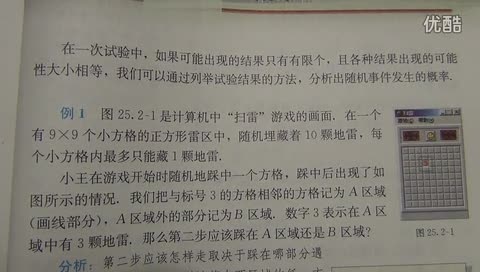 优酷
在一次试验中，如果可能出现的结果只有有限个，且各种结果出现的可能
性大小相等，我们可以通过列举试验结果的方法，分析出随机事件发生的概率.
例1 图 25.2-1 是计算机中“扫雷”游戏的画面. 在一个
有 9×9 个小方格的正方形雷区中，随机埋藏着 10 颗地雷，每
个小方格内最多只能藏 1 颗地雷.
小王在游戏开始时随机地踩中一个方格，踩中后出现了如
图所示的情况. 我们把与标号 3 的方格相邻的方格记为 A 区域
(画线部分)，A 区域外的部分记为 B 区域. 数字 3 表示在 A 区
域中有 3 颗地雷. 那么第二步应该踩在 A 区域还是 B 区域?
图 25.2-1
分析：第二步应该怎样走取决于踩在哪部分遇